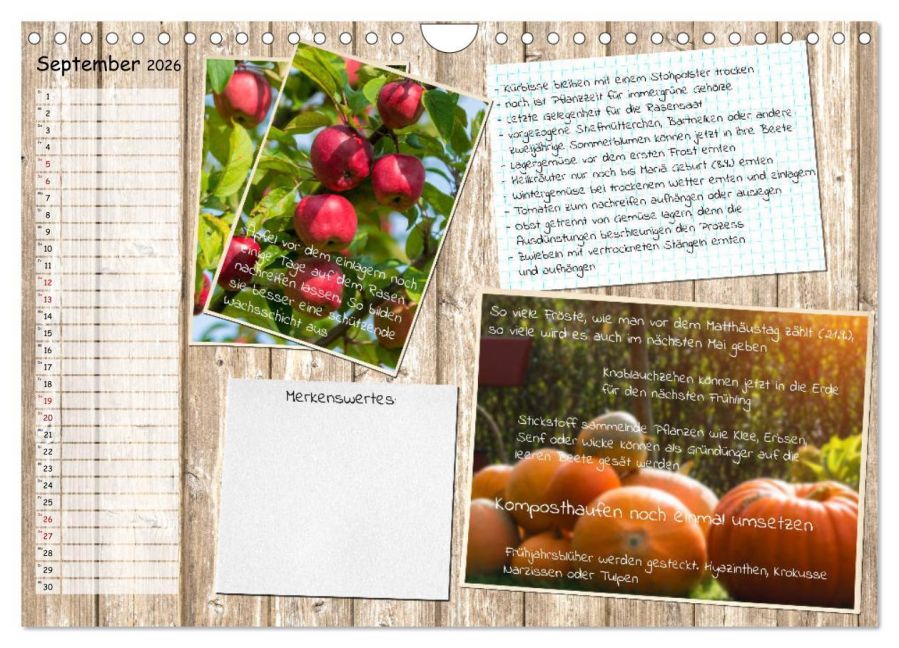 September 2026
1
2
3
4
5
6
7
8
9
10
11
12
13
14
15
16
17
18
19
20
21
22
23
24
25
26
27
28
29
30
Äpfel vor dem einlagern noch
einige Tage auf dem Rasen
nachreifen lassen. So bilden
sie besser eine schützende
Wachsschicht aus
- Kürbisse bleiben mit einem Strohpolster trocken
- noch ist Pflanzzeit für immergrüne Gehölze
- letzte Gelegenheit für die Rasensaat
- vorgezogene Stiefmütterchen, Bartnelken oder andere
zweijährige Sommerblumen können jetzt in ihre Beete
- Lagergemüse vor dem ersten Frost ernten
- Heilkräuter nur noch bis Mariä Geburt (8.9.) ernten
- Wintergemüse bei trockenem Wetter ernten und einlagern
- Tomaten zum nachreifen aufhängen oder auslegen
- Obst getrennt von Gemüse lagern, denn die
Ausdünstungen beschleunigen den Prozess
- Zwiebeln mit vertrockneten Stängeln ernten
und aufhängen
Merkenswertes:
So viele Fröste, wie man vor dem Matthäustag zählt (21.9.),
so viele wird es auch im nächsten Mai geben
Knoblauchzehen können jetzt in die Erde
für den nächsten Frühling
Stickstoff sammelnde Pflanzen wie Klee, Erbsen,
Senf oder Wicke können als Gründünger auf die
leeren Beete gesät werden
Komposthaufen noch einmal umsetzen
Frühjahrsblüher werden gesteckt. Hyazinthen, Krokusse
Narzissen oder Tulpen